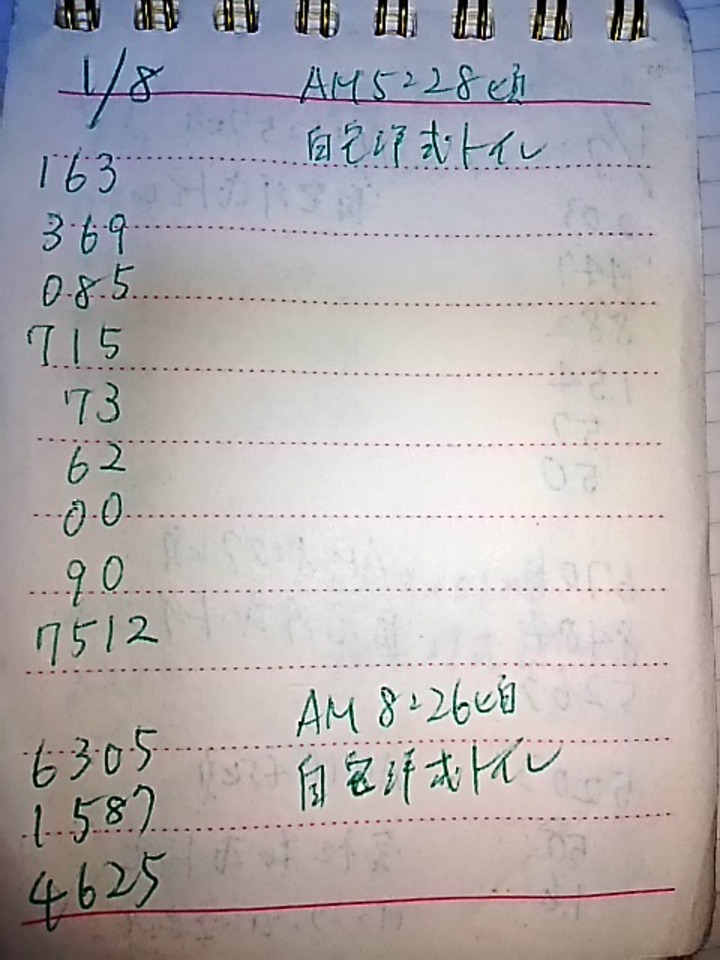 1/8 AM5:28頃
自宅洋式トイレ
163
369
085
715
73
62
00
90
7512
AM 8:26頃
6305 自宅洋式トイレ
1587
4625